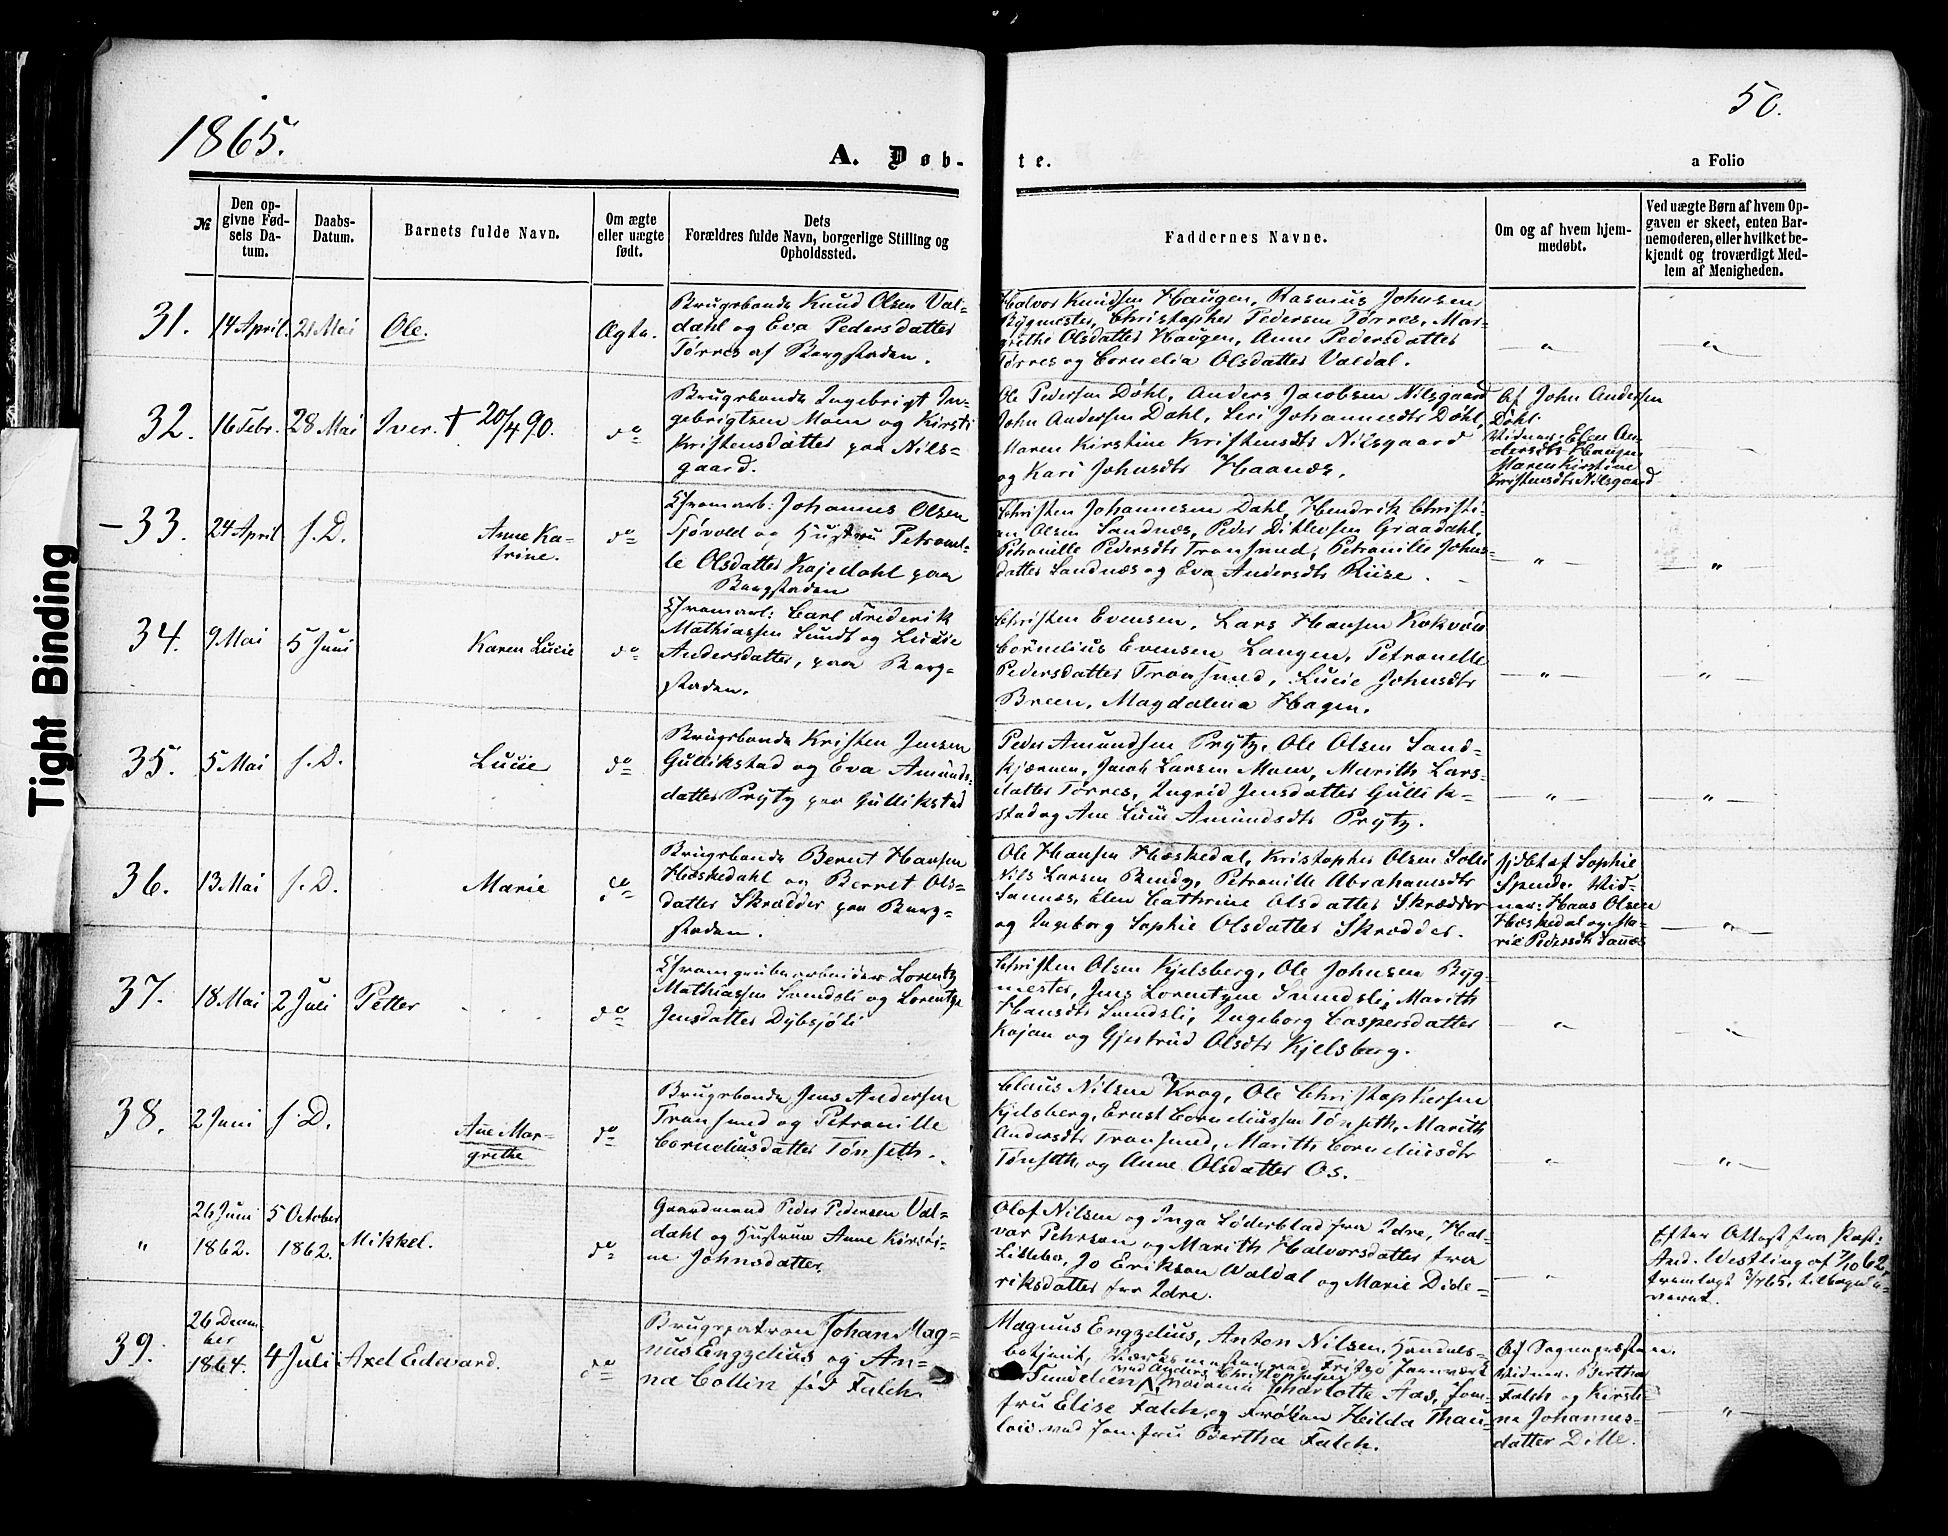 1865.
50.
A. Døb-
te.
a Folio
№
Den op-
givne Fød-
sels Da-
tum.
Daabs-
Datum.
Barnets fulde Navn.
Om ægte
eller uægte
født.
Dets
Forældres fulde Navn, borgerlige Stilling og
Opholdssted.
Faddernes Navne.
Om og af hvem hjem-
medøbt.
Ved uægte Børn af hvem Op-
gaven er skeet, enten Bar-
nemoderen, eller hvilket be-
kjendt og troværdigt Med-
lem af Menigheden.
31. 14 April. 21 Mai Ole. Ægte.
Brugsbonde Knud Olsen Val-
dahl og Eva Pedersdatter
Tørres af Bergstaden.
Halvor Knudsen Haugen, Rasmus Johnsen
Bygmester, Christopher Pedersen Tørres, Mar-
grethe Olsdatter Haugen, Anne Pedersdatter
Tørres og Cornelia Olsdatter Valdal.
— " —
— " —
32. 16 Febr. 28 Mai Iver. † 20/4 90. do
Brugsbonde Ingebrigt In-
gebrigtsen Moen og Kirsti
Kristensdatter paa Nils-
gaard.
Ole Pedersen Døhl, Anders Jacobsen Nilsgaard
John Andersen Dahl, Siri Johannesdtr Døhl,
Maren Kirstine Kristensdtr Nilsgaard
og Kari Johnsdtr Haanæs.
Af John Andersen
Døhl.
Vidner: Elen An-
dersdtr Haugen
Maren Kirstine
Kristensdtr Nilsgaard
— 33. 24 April s. D. Anne Ka-
trine. do
Gruvearb: Johannes Olsen
Sjøvold og Hustru Petronel-
le Olsdatter Kojedahl paa
Bergstaden
Christen Johannesen Dahl, Hendrik Christi-
an Olsen Sandnæs, Peder Ditlevsen Graadahl,
Petronille Pedersdtr Tronsmed, Petronille Johns-
datter Sandnæs og Eva Andersdtr Riise.
— " —
"
34. 9 Mai 5 Juni Karen Lucie do
Gruvearb: Carl Frederik
Mathiassen Sundt og Lucie
Andersdatter, paa Berg-
staden.
Christen Evensen, Lars Hansen Kokvold
Cornelius Evensen Langen, Petronelle
Pedersdatter Tronsmed, Lucie Johnsdtr
Breen, Magdalena Hagen.
— " —
— " —
35. 5 Mai s. D. Lucie do
Brugsbonde Kristen Jensen
Gullikstad og Eva Amunds-
datter Prytz paa Gullikstad
Peder Amundsen Prytz, Ole Olsen Sand-
kjærnen, Jacob Larsen Moen, Marith Lars-
datter Tørres, Ingrid Jensdatter Gullik-
stad og Ane Lucie Amundsdtr Prytz.
— " —
— " —
36. 13 Mai s. D. Marie do
Brugsbonde Bernt Hansen
Hæskedahl og Berret Ols-
datter Skrædder paa Berg-
staden.
Ole Hansen Hæskedal, Kristopher Olsen
Nils Larsen Bendz, Petronille Abrahamsdtr
Sannæs, Elen Cathrine Olsdatter Skrædder
og Ingeborg Sophie Olsdatter Skrædder.
hjdbt af Sophie
Vid-
ner: Hans Olsen
Hæskedal og Ma-
rie Pedersdtr Sannæs
— " —
37. 18 Mai 2 Juli Petter do
Gruvegrubearbeider Lorentz
Mathiassen Svendsli og Lorentze
Jensdatter Dybsjøli
Christen Olsen Kjelsberg, Ole Johnsen Byg-
mester, Jens Lorentzen Svendsli, Marith
Hansdtr Svendsli, Ingeborg Caspersdatter
Kojan og Gjertrud Olsdtr Kjelsberg.
— " —
— " —
38. 2 Juni s. D. Ane Mar-
grethe do
Brugsbonde Jens Andersen
Tronsmed og Petronille
Corneliusdatter Tønseth.
Claus Nilsen Krog, Ole Christophersen
Kjelsberg, Ernst Corneliussen Tønseth, Marith
Andersdtr Tronsmed, Marith Corneliusdtr
Tønseth, og Anne Olsdatter Os.
— " —
— " —
" 26 Juni
1862. 5 October
1862. Mikkel. do
Gaardmand Peder Pedersen Val-
dahl og Hustru Anne Kirsti-
ne Johnsdatter.
Olof Nilsen og Inga Söderblad fra Idre, Hal-
var Pehrson og Marith Halvorsdatter fra
Lillebo, Jo Erikson Waldal og Marie Dide-
riksdatter fra Idre.
— " —
Efter Attest fra Past:
And. Westling af 7/10 62,
fremlagt 3/7 65, tilbagele-
veret.
39. 26 Decem-
ber
1864. 4 Juli Axel Edevard. do
Brugspatron Johan Mag-
nus Engzelius og An-
na Collin fød Falch.
Magnus Engzelius, Anton Nilsen, Handels-
betjent, Værksmester ved Fritzø Jernværk
ved Anders Christophersen
Tundelien, Madame Charlotte Aas, Jom-
fru Elise Falch, og Frøken Hilda Thau-
low ved Jomfru Bertha Falch.
Af Sognepresten.
Vidner: Bertha
Falch og Kirsti-
ne Johannes-
datter Dille.
— " —
Tight Binding